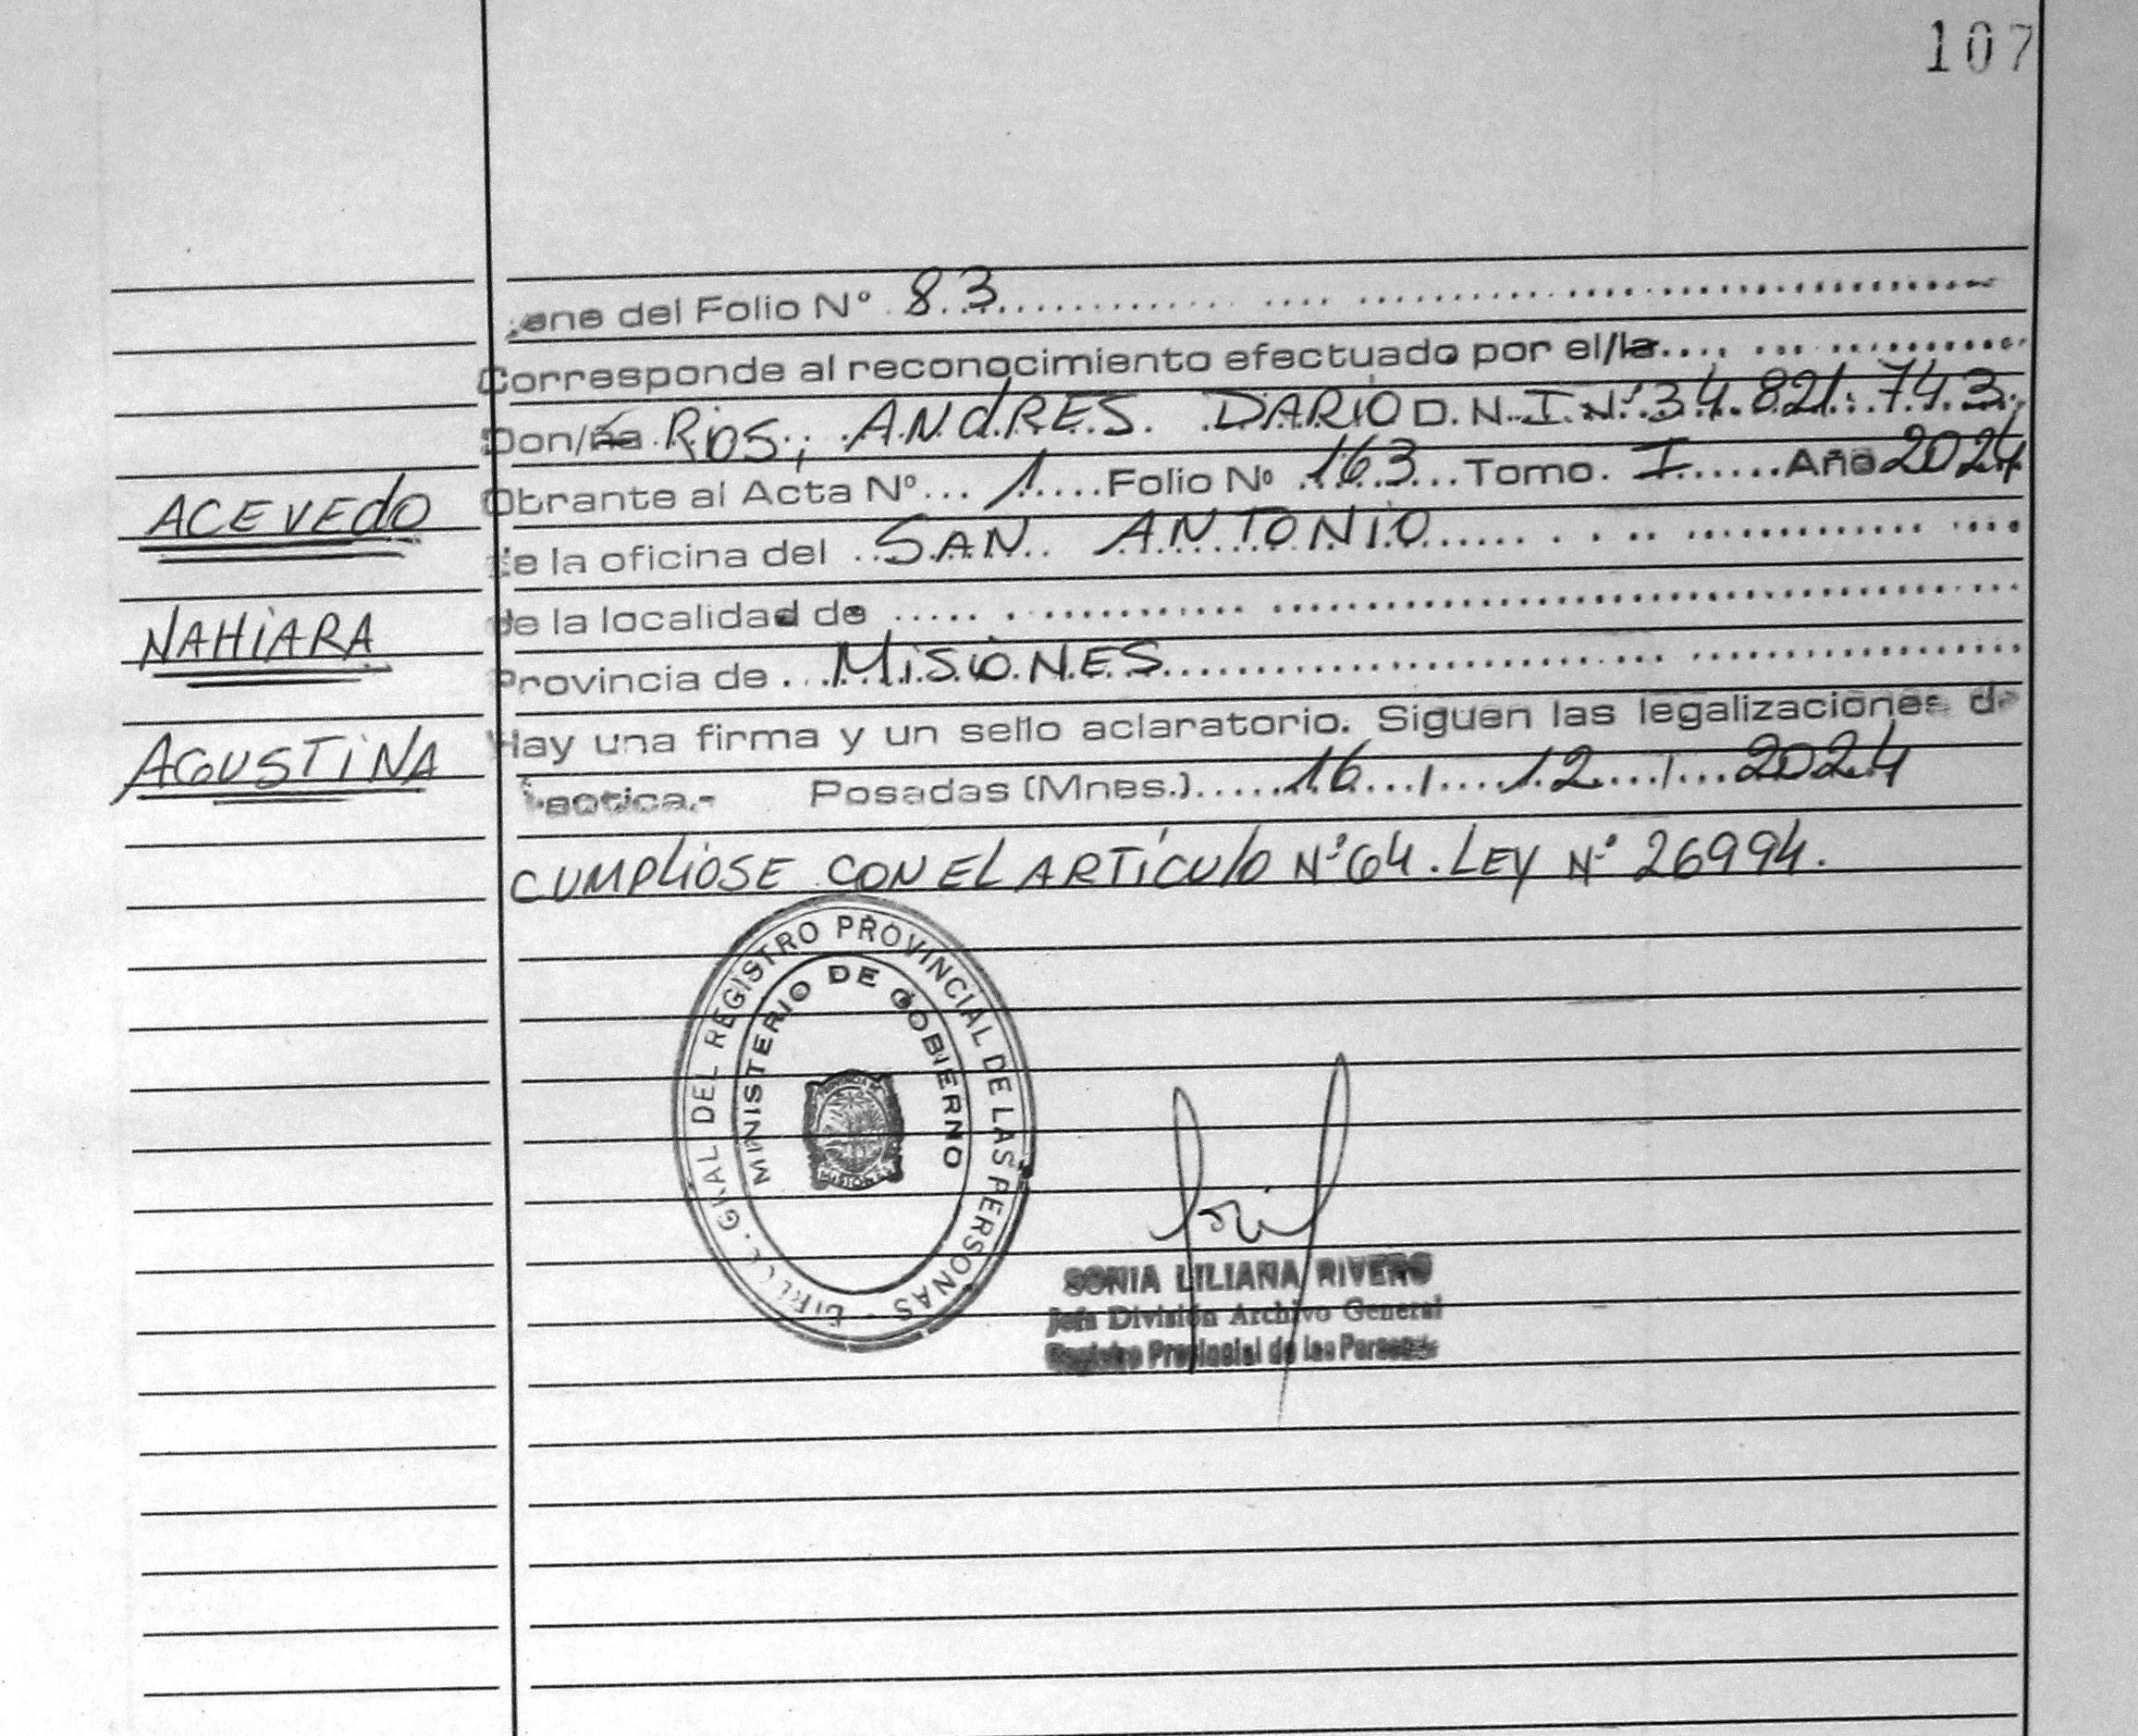 107
ene del Folio Nº 83
Corresponde al reconocimiento efectuado por el/la
Don/ña Rios; ANdRES DARIO D.N.I.Nº 34.821.743
Obrante al Acta Nº 1 Folio Nº 163 Tomo. I Año 2024
de la oficina del SAN ANTONiO
de la localidad de
Provincia de MiSiONES
Hay una firma y un sello aclaratorio. Siguen las legalizaciones de
Posadas (Mnes.) 16 / 12 / 2024
CUMPLIOSE CON EL ARTÍCULO Nº 64. LEY Nº 26994.
ACEVEdO
NAHiARA
AGUSTiNA
GRAL DEL REGISTRO PROVINCIAL DE LAS PERSONAS
MINISTERIO DE GOBIERNO
MISIONES
SONIA LILIANA RIVERO
Jefa División Archivo General
Registro Provincial de las Personas